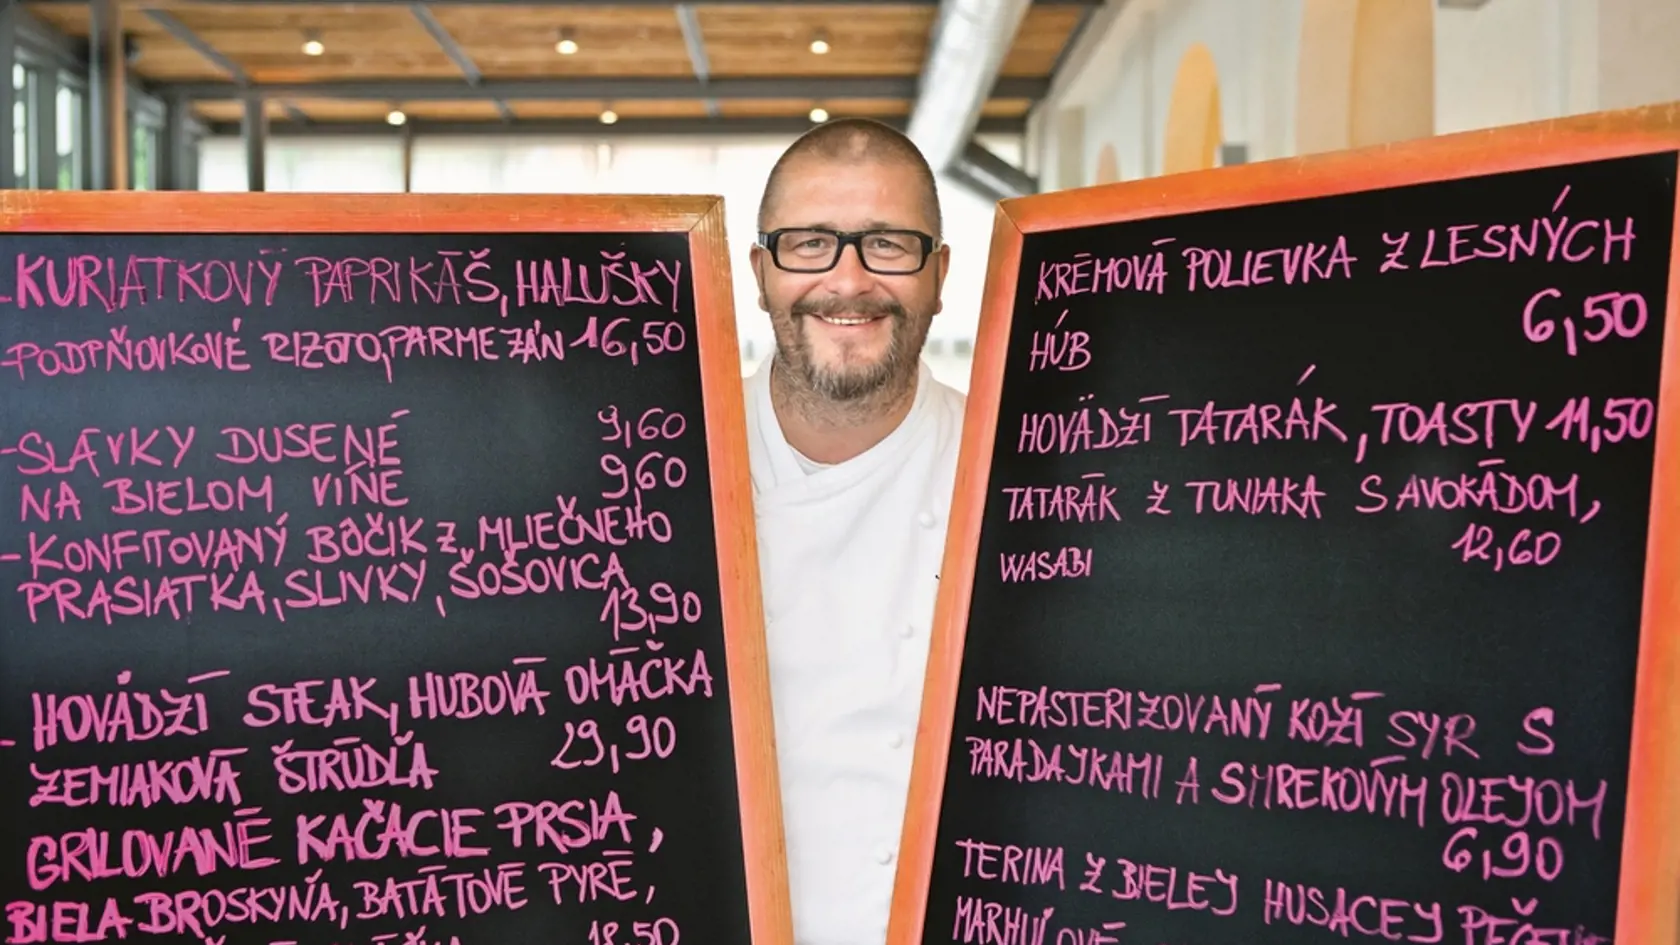 -KURIATKOVÝ PAPRIKÁŠ, HALUŠKY
-PODPŇOVKOVÉ RIZOTO, PARMEZÁN 16,50
-SLÁVKY DUSENÉ 9,60
NA BIELOM VÍNE 9,60
-KONFITOVANÝ BÔČIK Z MLIEČNEHO
PRASIATKA, SLIVKY, ŠOŠOVICA
13,90
-HOVÄDZÍ STEAK, HUBOVÁ OMÁČKA
ZEMIAKOVÁ ŠTRÚDĽA 29,90
GRILOVANÉ KAČACIE PRSIA,
BIELA BROSKYŇA, BATÁTOVÉ PYRÉ,
18,50
KRÉMOVÁ POLIEVKA Z LESNÝCH
HÚB 6,50
HOVÄDZÍ TATARÁK, TOASTY 11,50
TATARÁK Z TUNIAKA S AVOKÁDOM,
WASABI 12,60
NEPASTERIZOVANÝ KOZÍ SYR S
PARADAJKAMI A SMREKOVÝM OLEJOM
6,90
TERINA Z BIELEJ HUSACEJ